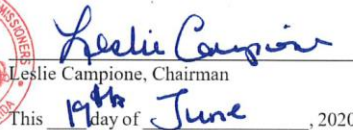 Leslie Campione
Leslie Campione, Chairman
This 19th day of June, 2020